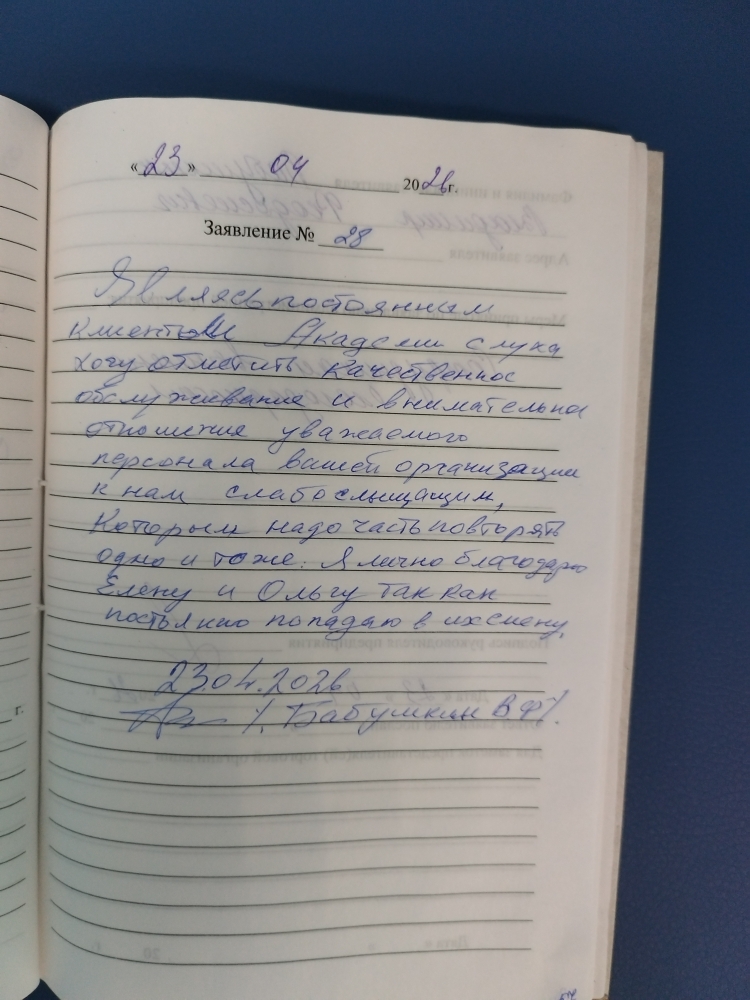 «23» 04 2026 г.
Заявление № 28
Являясь постоянным
клиентом Академии слуха
хочу отметить качественное
обслуживание и внимательное
отношение уважаемого
персонала вашей организации
к нам слабослышащим,
которым надо часть повторять
одно и тоже. Я лично благодарю
Елену и Ольгу так как
постоянно попадаю в их смену.
23.04.2026
/. Бабушкин В Ф/.
г.